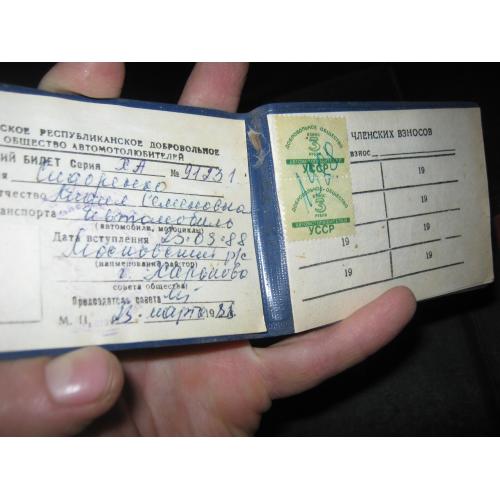 СКОЕ РЕСПУБЛИКАНСКОЕ ДОБРОВОЛЬНОЕ
ОБЩЕСТВО АВТОМОТОЛЮБИТЕЛЕЙ
КИЙ БИЛЕТ Серия ХА №
Сидоренко
тчество Семеновна
транспорта Автомобиль
(автомобиль, мотоцикл)
Дата вступления 23-03-88
Московский р/с
(наименование район/гор)
г. Харьково
совета общества)
Председатель совета
М. П. 23 марта 1988
ЧЛЕНСКИХ ВЗНОСОВ
взнос
19
19 19
19 19
19
19
ДОБРОВОЛЬНОЕ ОБЩЕСТВО
3
АВТОМОТОЛЮБИТЕЛЕЙ
УССР
ДОБРОВОЛЬНОЕ ОБЩЕСТВО
3
РУБЛЯ
АВТОМОТОЛЮБИТЕЛЕЙ
УССР